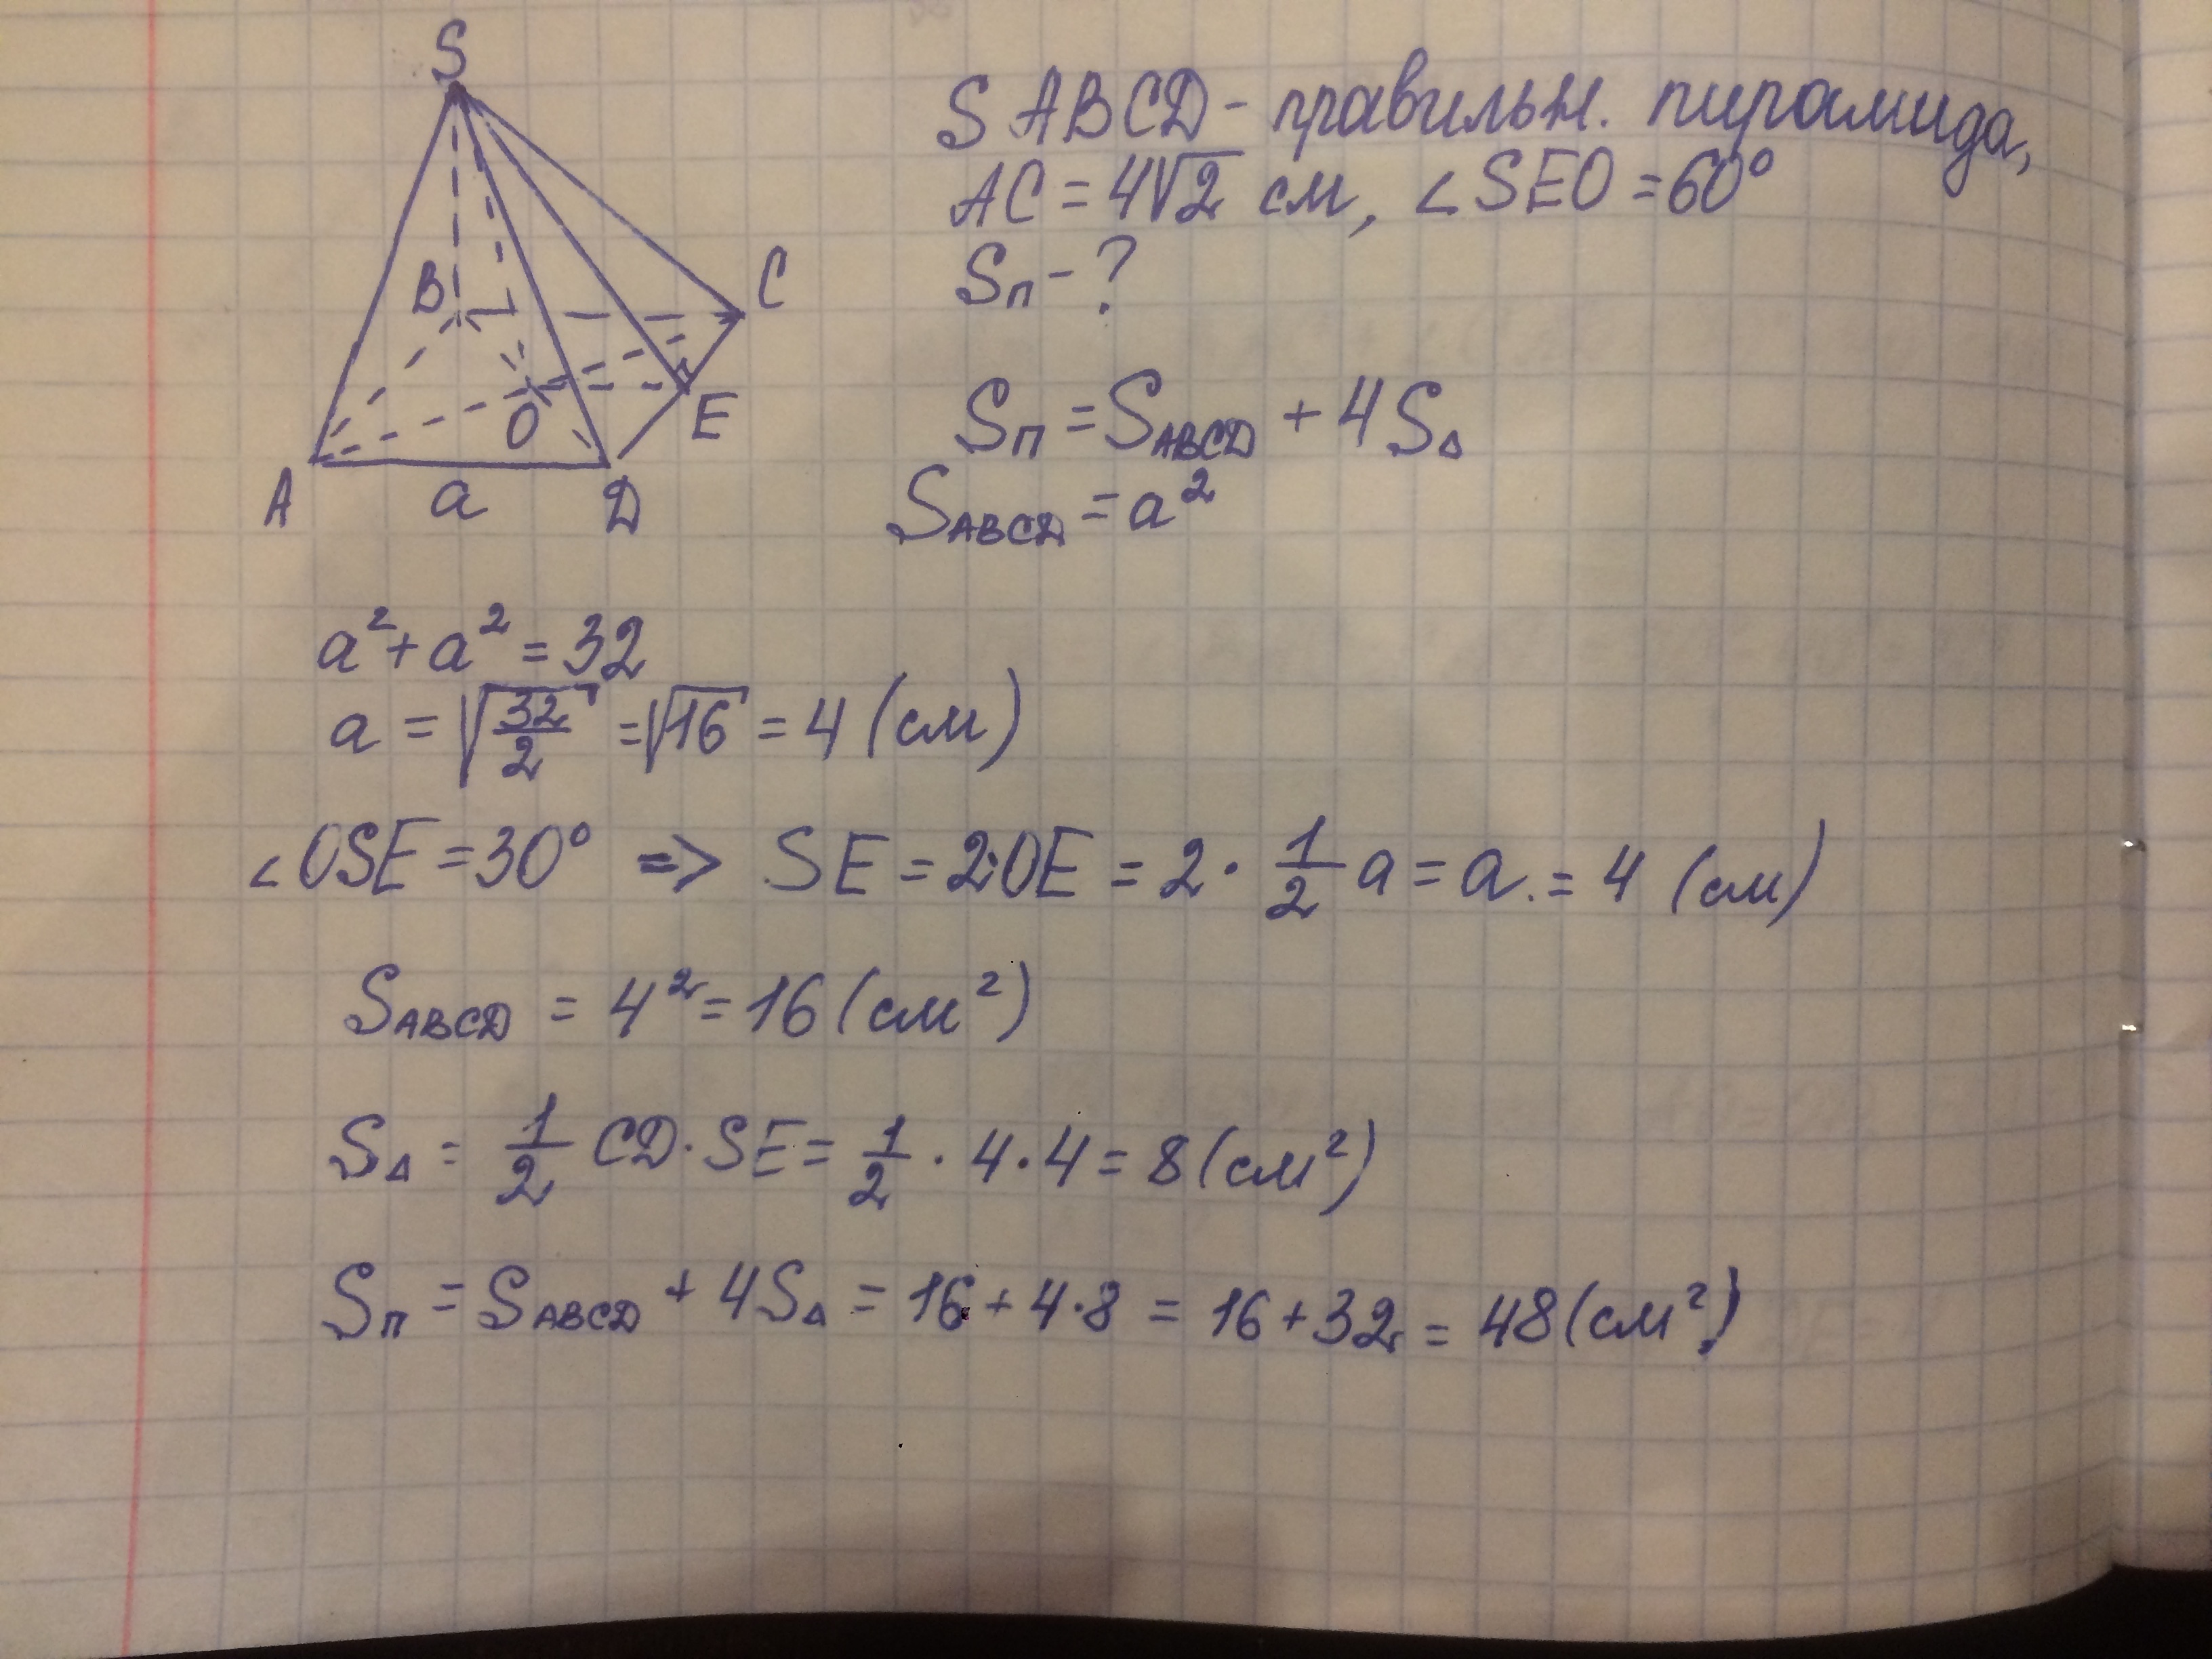 S
B
C
O
E
A
a
D
SABCD - правильн. пирамида,
AC = 4√2 см, ∠SEO = 60°
Sп - ?
Sп = SABCD + 4S△
SABCD = a²
a² + a² = 32
a = √(32/2) = √16 = 4 (см)
∠OSE = 30° => SE = 2·OE = 2 · 1/2 a = a. = 4 (см)
SABCD = 4² = 16 (см²)
S△ = 1/2 CD · SE = 1/2 · 4 · 4 = 8 (см²)
Sп = SABCD + 4S△ = 16 + 4·8 = 16 + 32 = 48 (см²)